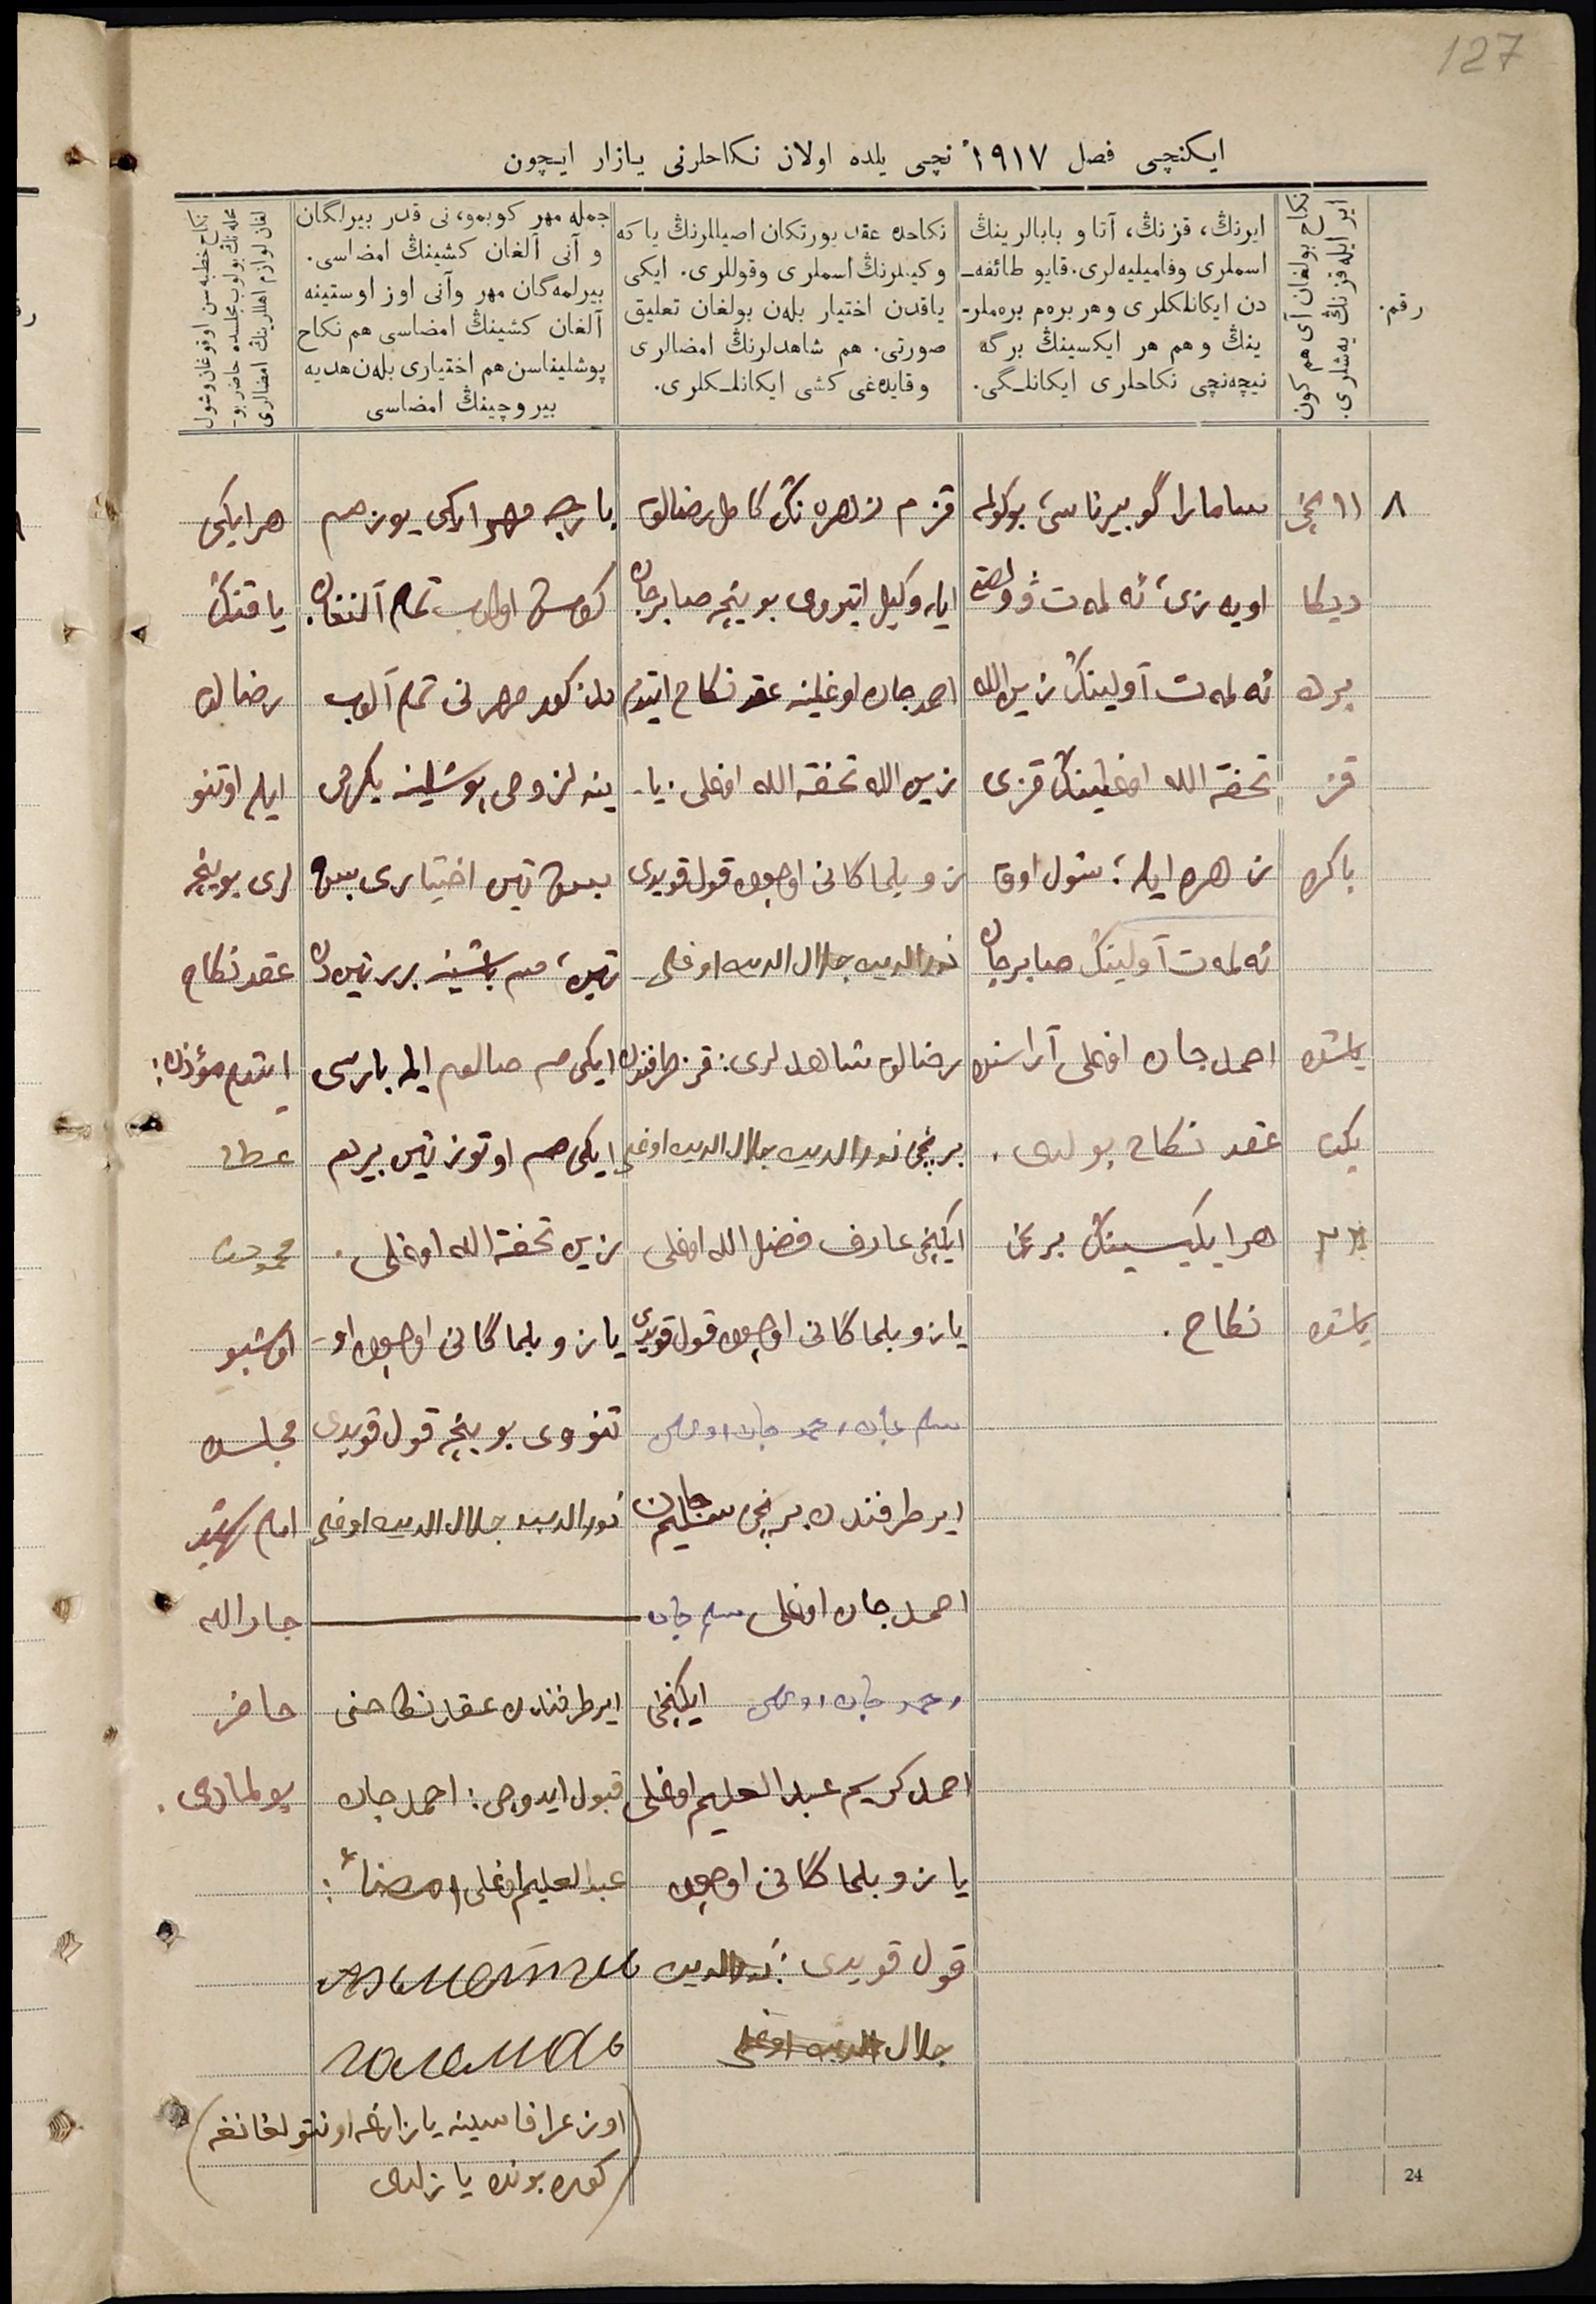 127
ایكنچی فصل ١٩١٧ نچی یلده اولان نكاحلرنی یازار ایچون
رقم.
نكاح بولغان آی هم كون
ایر ایله قزنڭ یه‌شلری.
ایرنڭ، قزنڭ، آتا و بابالرینڭ
اسملری وفامیلیه‌لری. قایو طائفه‌ـ
دن ایكانلكلری و هر بره‌م بره‌ملرـ
ینڭ و هم هر ایكسینڭ برگه
نیچه‌نچی نكاحلری ایكانلـگی.
نكاحده عقد یورتكان اصیللرنڭ یا كه
وكیللرنڭ اسملری وقوللری. ایكی
یاقدن اختیار بله‌ن بولغان تعلیق
صورتی. هم شاهدلرنڭ امضالری
وقایده‌غی كشی ایكانلـكلری.
جمله مهر كوبمو، نی قدر بیرلگان
و آنی آلغان كشینڭ امضاسی.
بیرلمه‌گان مهر وآنی اوز اوستینه
آلغان كشینڭ امضاسی هم نكاح
پوشلیناسن هم اختیاری بله‌ن هدیه
بیروچینڭ امضاسی
نكاح خطبه سن اوقوغان وشول
محله‌نڭ بولوب مجلسده حاضر بوـ
لغان لوازم اهللارینڭ امضالری
٨
١١ نچی
دیكا
برده
قز
باكره
یاشنده
یكت
٢٣
یاشنده
سامارا گوبیرناسی بوكولمه
اویه‌زی ئه‌لمه‌ت ڤولصتی
ئه‌لمه‌ت آولینڭ زین الله
تحفة الله اوغلینڭ قزی
زهره ایله؛ شول اوق
ئه‌لمه‌ت آولینڭ صابرجان
احمدجان اوغلی آراسنده
عقد نكاح بولدی.
هر ایكیسینڭ برنچی
نكاح.
قزم زهره نڭ كامل رضالق
ایله وكیل ایتووی بوینچه صابرجان
احمدجان اوغلینه عقد نكاح ایتدم
زین الله تحفة الله اوغلی. یاـ
زو بلماگانی اوچون قول قویدی
نورالدین جلال الدین اوغلی
رضالق شاهدلری: قز طرفندن
برنچی نورالدین جلال الدین اوغلی
ایكنچی عارف فضل الله اوغلی
یازو بلماگانی اوچون قول قویدی
سلیم جان احمد جان اوغلی
ایر طرفندن برنچی سلیم جان
احمدجان اوغلی سلیم جان
احمد جان اوغلی ایكنچی
احمد كریم عبدالعلیم اوغلی
یازو بلماگانی اوچون
قول قویدی: نورالدین
جلال الدین اوغلی
بارچه مهر ایكی یوز صم
كوموش اولوب تمام آلنغان.
مذكور مهرنی تمام آلوب
ینه لزومی پوشلینه یگرمی
بیش تین اختیاری بیش
تین، صم باشینه برر تین دن
ایكی صم صالوم ایله بارسی
ایكی صم اوتوز تین بیردم
زین تحفة الله اوغلی.
یازو بلماگانی اوچون اوـ
تنووی بوینچه قول قویدی
نورالدین جلال الدین اوغلی
ایر طرفندن عقد نكاحنی
قبول ایدوچی: احمد جان
عبدالعلیم اوغلی امضاءٔ:
(اوز غرافاسینه یازارغه اونتولغانغه
كوره بونده یازلدی)
هر ایكی
یاقنڭ
رضالق
ایله اوتنو
لری بوینچه
عقد نكاح
ایتدم مؤذن:
محمودف
اوشبو
مجلسده
امام
جارالله
حاضر
بولمادی.
24